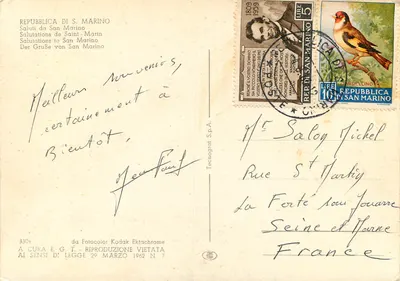 REPUBBLICA DI S. MARINO
Saluti da San Marino
Salutations de Saint-Marin
Salutations to San Marino
Der Große von San Marino
Meilleurs souvenirs,
certainement à
Bientôt,
8304
da Fotocolor Kodak Ektachrome
A CURA E. G. T. - RIPRODUZIONE VIETATA
AI SENSI DI LEGGE 29 MARZO 1942 N. ?
S.p.A.
1809
1959
LIRE 5
REP. DI SAN MARINO
LIRE 10
REPUBBLICA
DI SAN MARINO
POSTE
Mr Salon Michel
Rue St Martin
La Ferté sous Jouarre
Seine et Marne
France